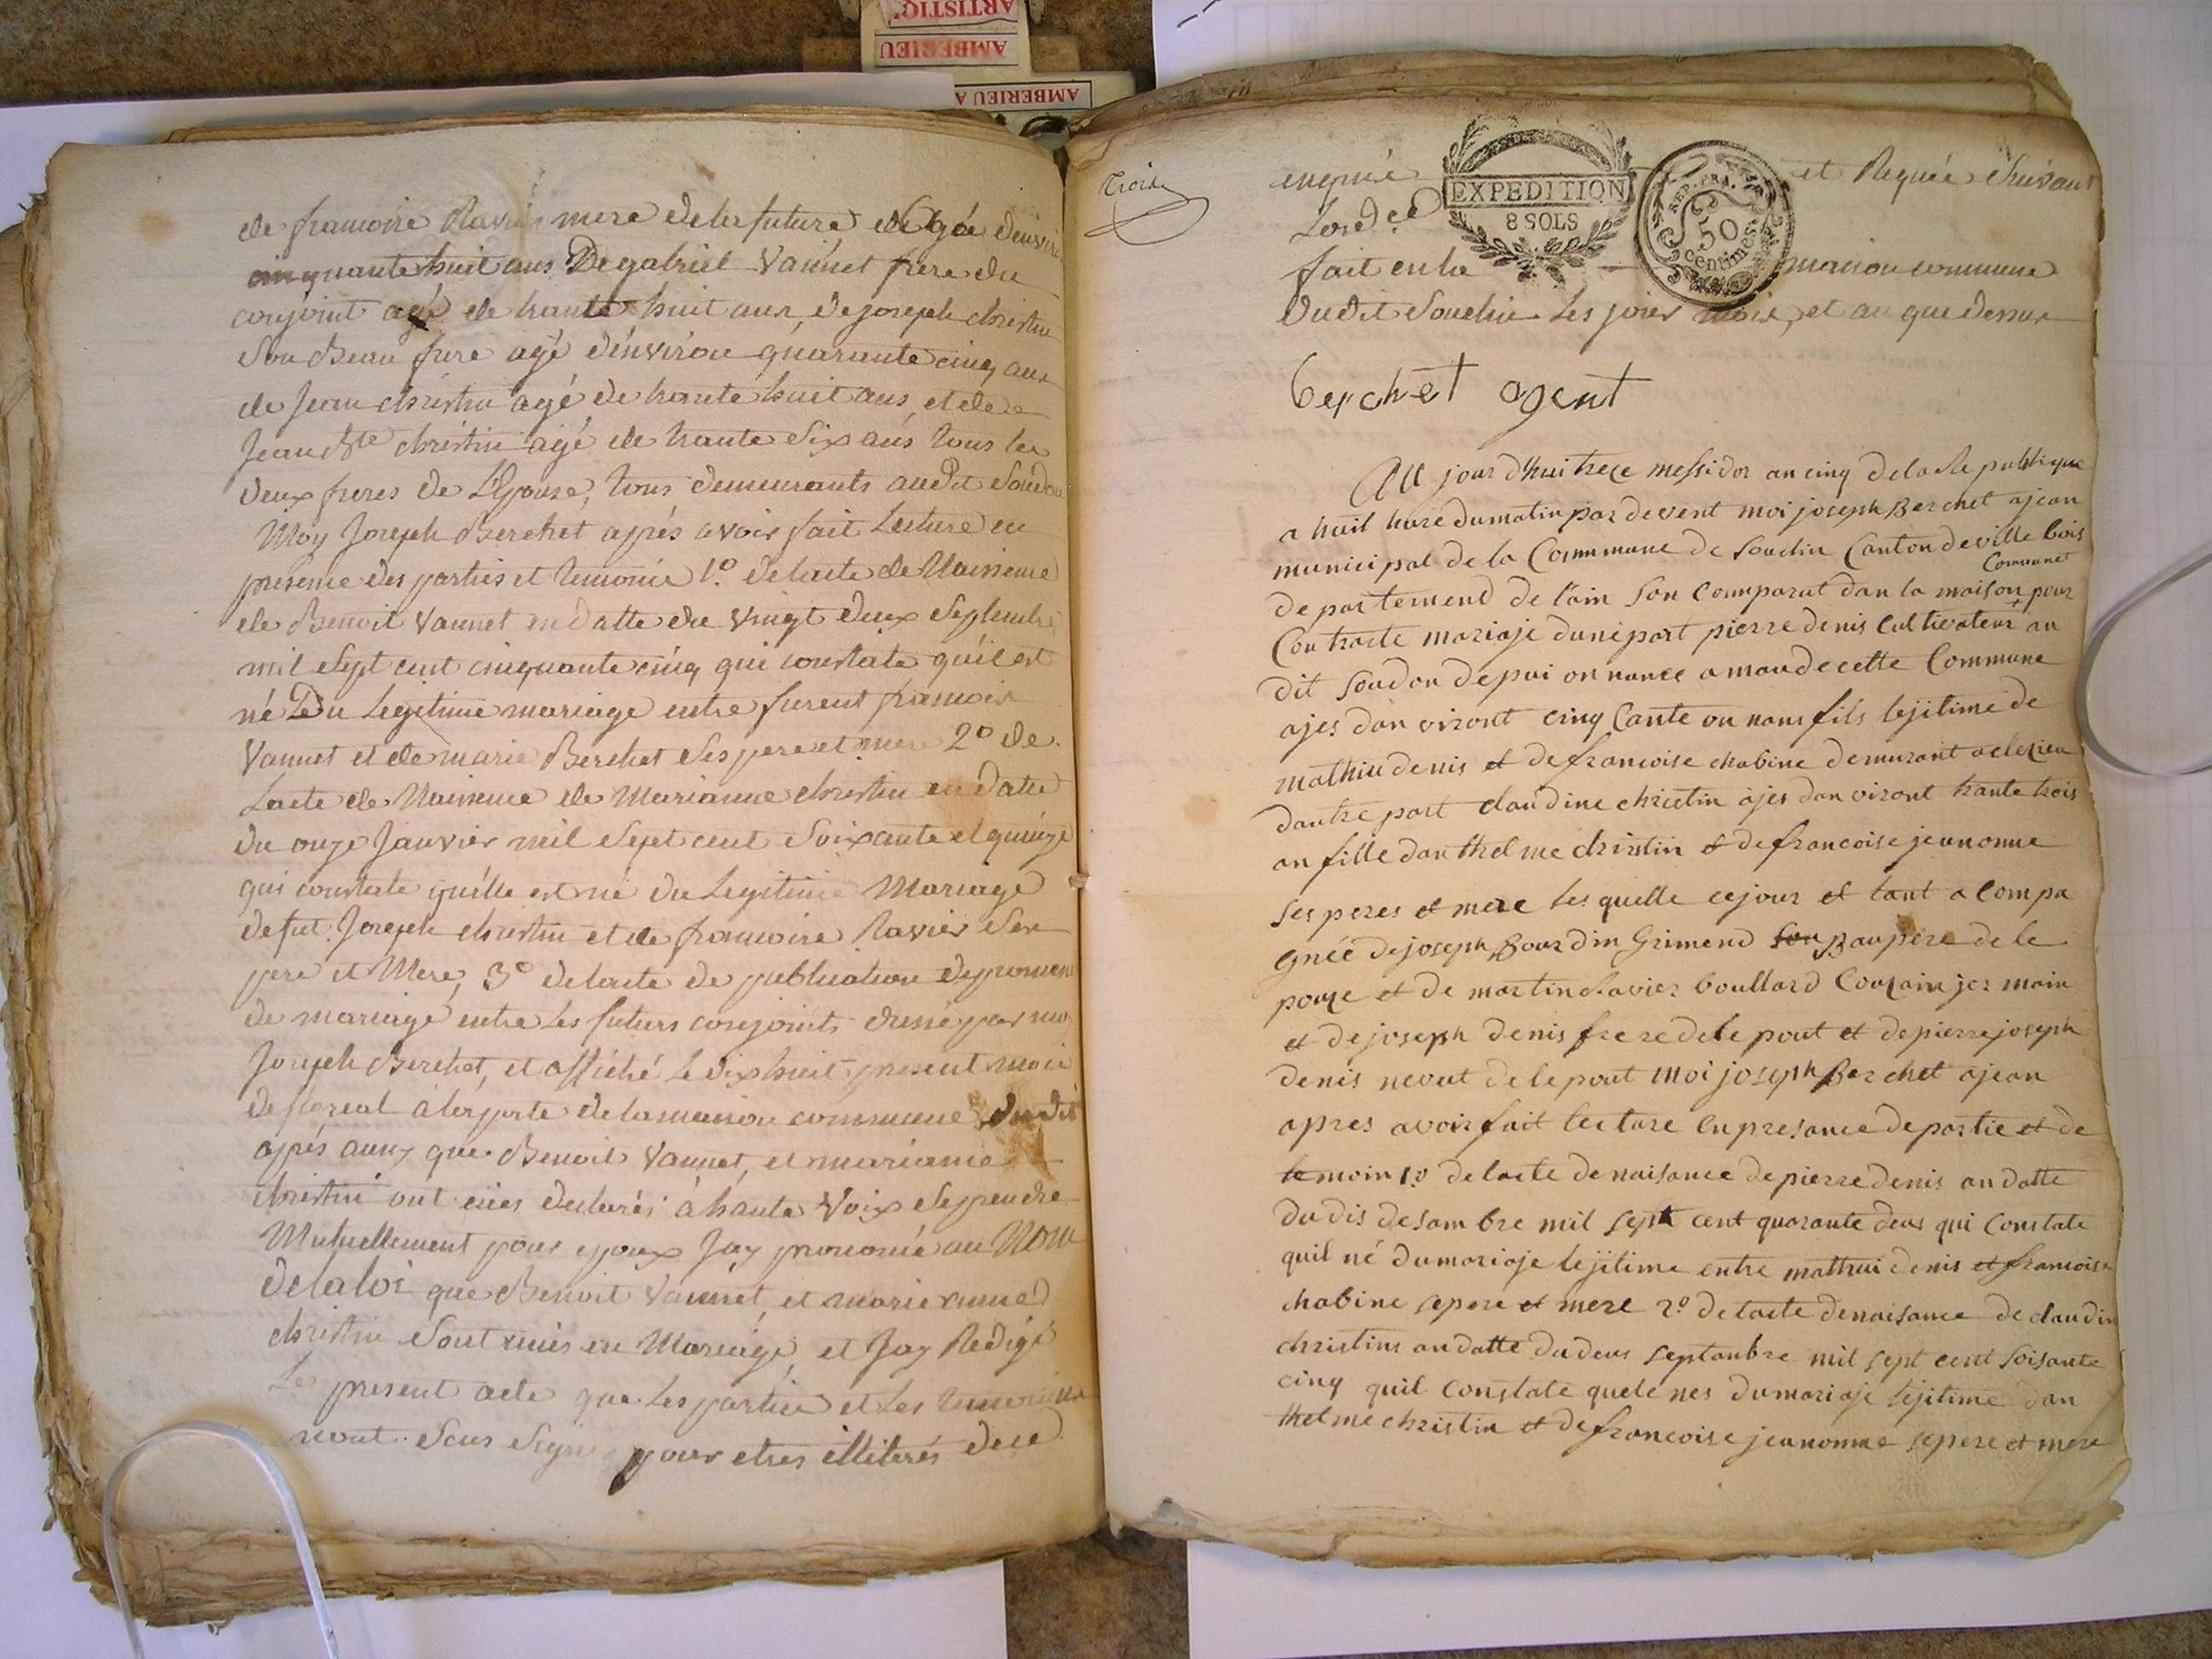 ARTISTIQ
AMBERIEU
AMBERIEU A
de francoise Ravier mere de la future agé d'environ
cinquante huit ans De gabriel Vannet frere du
conjoint agé de trante huit ans, de joseph christin
Son Beau frere agé d'environ quarante cinq ans
de Jean christin agé de trante huit ans, et de
Jean Bte christin agé de trante Six ans tous les
deux freres de L'Epouse, tous demeurants audit Soudon
Moy Joseph Berchet aprés avoir fait Lecture en
presence des parties et temoins 1o. de lacte de Naissence
de Benoit Vannet en datte du Vingt deux Septembre
mil Sept cent cinquante cinq qui constate qu'il est
né Du Legitime mariage entre furent francois
Vannet et de marie Berchet Ses pere et mere 2o de
Lacte de Naissence de Marianne christin en datte
du onze Janvier mil Sept cent Soixante et quinze
qui constate qu'elle est né du Legitime Mariage
defut Joseph christin et de francoise Ravier Ses
pere et Mere, 3o de lacte de publication de promesse
de mariage entre Les futurs conjoints dressé par moy
Joseph Berchet, et affiché Le dix huit present mois
de floreal à la porte de la maison commune dudit
aprés aussy que Benoit Vannet, et marianne
christin ont eües declarés à haute Voix Se prendre
Mutuellement pour epoux Jay prononcé au Nom
De la loi que Benoit Vannet, et marie anne
christin Sont unis en Mariage, et Jay Redigé
Le present acte que Les parties et Les temoins
nont Sous Signé pour etres illiterés de ce
Trois
enquis et Requis Suivant
EXPEDITION
8 SOLS
REP. FRA.
50
centimes
fait en la maison commune
dudit Soudon Les jour mois, et an que dessus
Berchet agent
Au jour d'hui treze messidor an cinq de la Re publique
a huit hure du matin par devent moi joseph Berchet ajean
municipal de la Commune de Soudin Canton de ville bois
Communet
de partemend de l'ain Son Comparut dan la maison + pour
Contracte mariaje dune part pierre denis Cultivateur au
dit Soudon depui on nance a mau de cette Commune
ajes dan viront cinq Cante ou nans fils lejitime de
mathiu denis et de francoise chabine demurant a clezieu
dautre part claudine christin àjes dan viront trante trois
an fille dan thel me christin et de francoise jeunomme
Ses peres et mere les quelle ce jour et tant a Compa
gnéé de joseph Bourdin Grimend Son Baupére de le
pouze et de martin Ravier boullard Couzain jer main
et de joseph denis frere de le pout et de pierre joseph
denis nevut de le pout Moi joseph Berchet ajean
apres avoir fait lecture en presance de partie et de
temoin 1o de lacte de naisance de pierre denis an datte
du dis desambre mil sept cent quarante deus qui Constate
quil né du mariaje lejitime entre mathui denis et francoise
chabine sepere et mere 2o de lacte denaisance de claudin
christins an datte du deus septanbre mil sept cent soisante
cinq quil Constate quele nes du mariaje lejitime dan
thel me christin et de francoise jeunomme sepere et mere